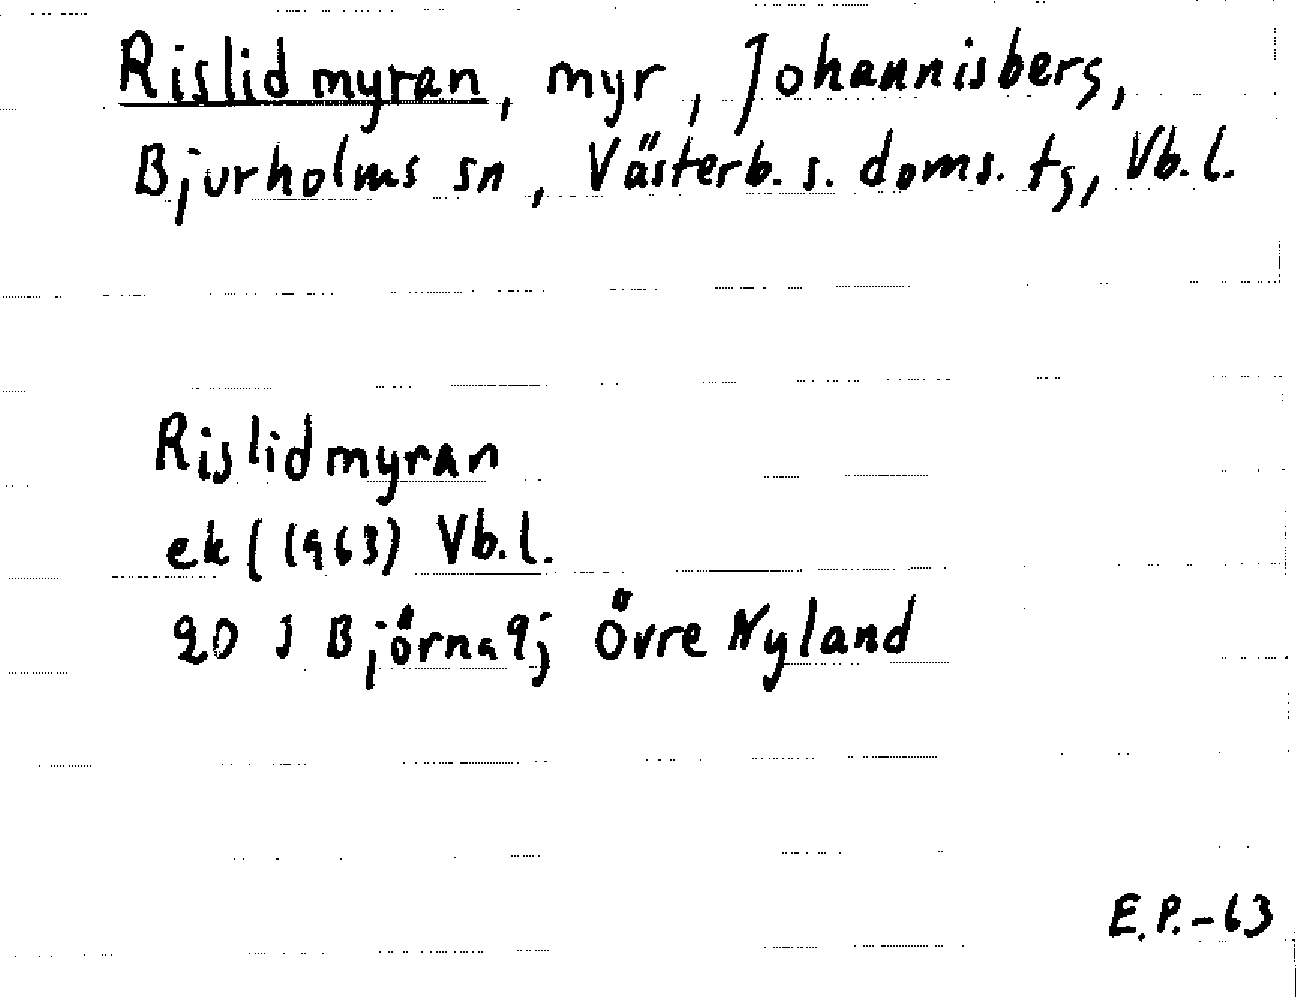 Rislidmyran, myr, Johannisberg,
Bjurholms sn, Västerb. s. doms. tg, Vb.l.
Rislidmyran
ek (1963) Vb.l.
20 J Björna 9j Övre Nyland
E.P.-63